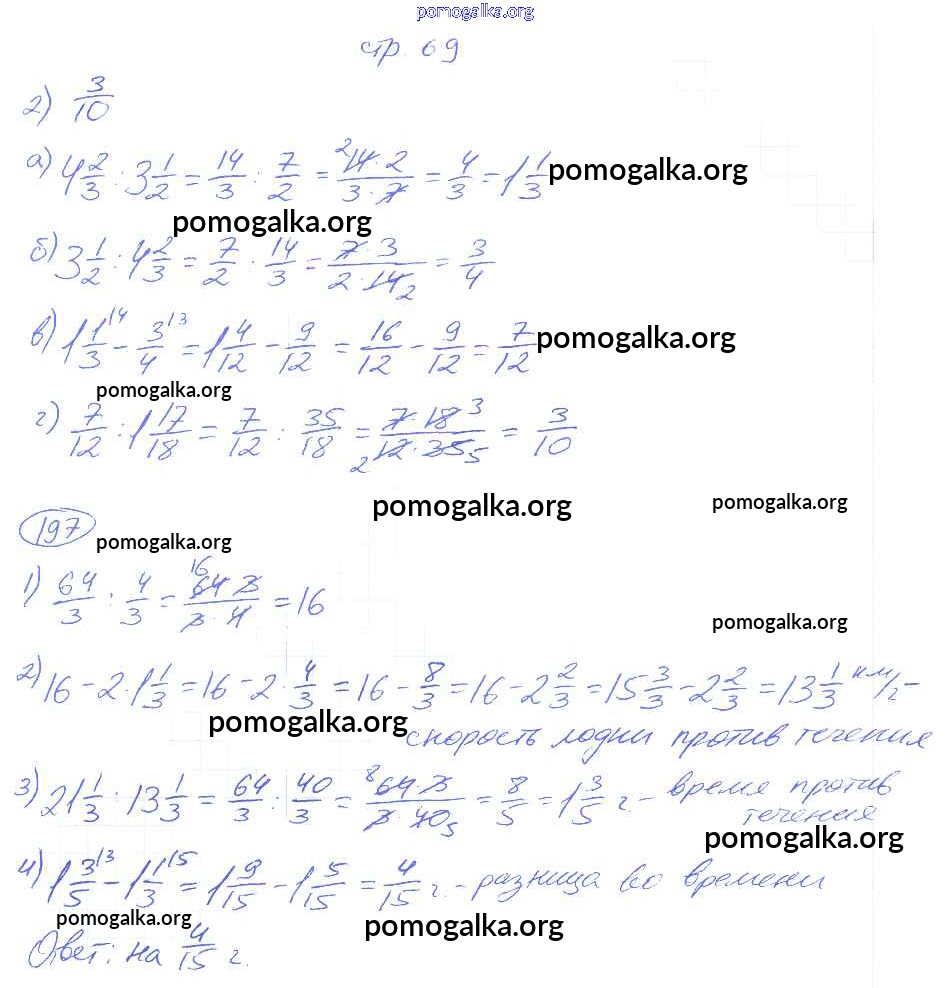 pomogalka.org
стр. 69
2) 3/10
а) 4 2/3 : 3 1/2 = 14/3 : 7/2 = ²14 · 2/3 · 7 = 4/3 = 1 1/3 pomogalka.org
pomogalka.org
б) 3 1/2 : 4 2/3 = 7/2 : 14/3 = 7 · 3/2 · 14₂ = 3/4
в) 1 1/3^(14 - 3/4^(13 = 1 4/12 - 9/12 = 16/12 - 9/12 = 7/12 pomogalka.org
pomogalka.org
г) 7/12 : 1 17/18 = 7/12 : 35/18 = 7 · 18³/₂12 · 35₅ = 3/10
pomogalka.org pomogalka.org
197
pomogalka.org
1) 64/3 : 4/3 = ¹⁶64 · 3/3 · 4 = 16
pomogalka.org
2) 16 - 2 · 1 1/3 = 16 - 2 · 4/3 = 16 - 8/3 = 16 - 2 2/3 = 15 3/3 - 2 2/3 = 13 1/3 км/г -
pomogalka.org
скорость лодки против течения
3) 21 1/3 : 13 1/3 = 64/3 : 40/3 = ⁸64 · 3/3 · 40₅ = 8/5 = 1 3/5 г. - время против
течения
pomogalka.org
4) 1 3/5^(3 - 1 1/3^(5 = 1 9/15 - 1 5/15 = 4/15 г. - разница во времени
pomogalka.org pomogalka.org
Ответ: на 4/15 г.